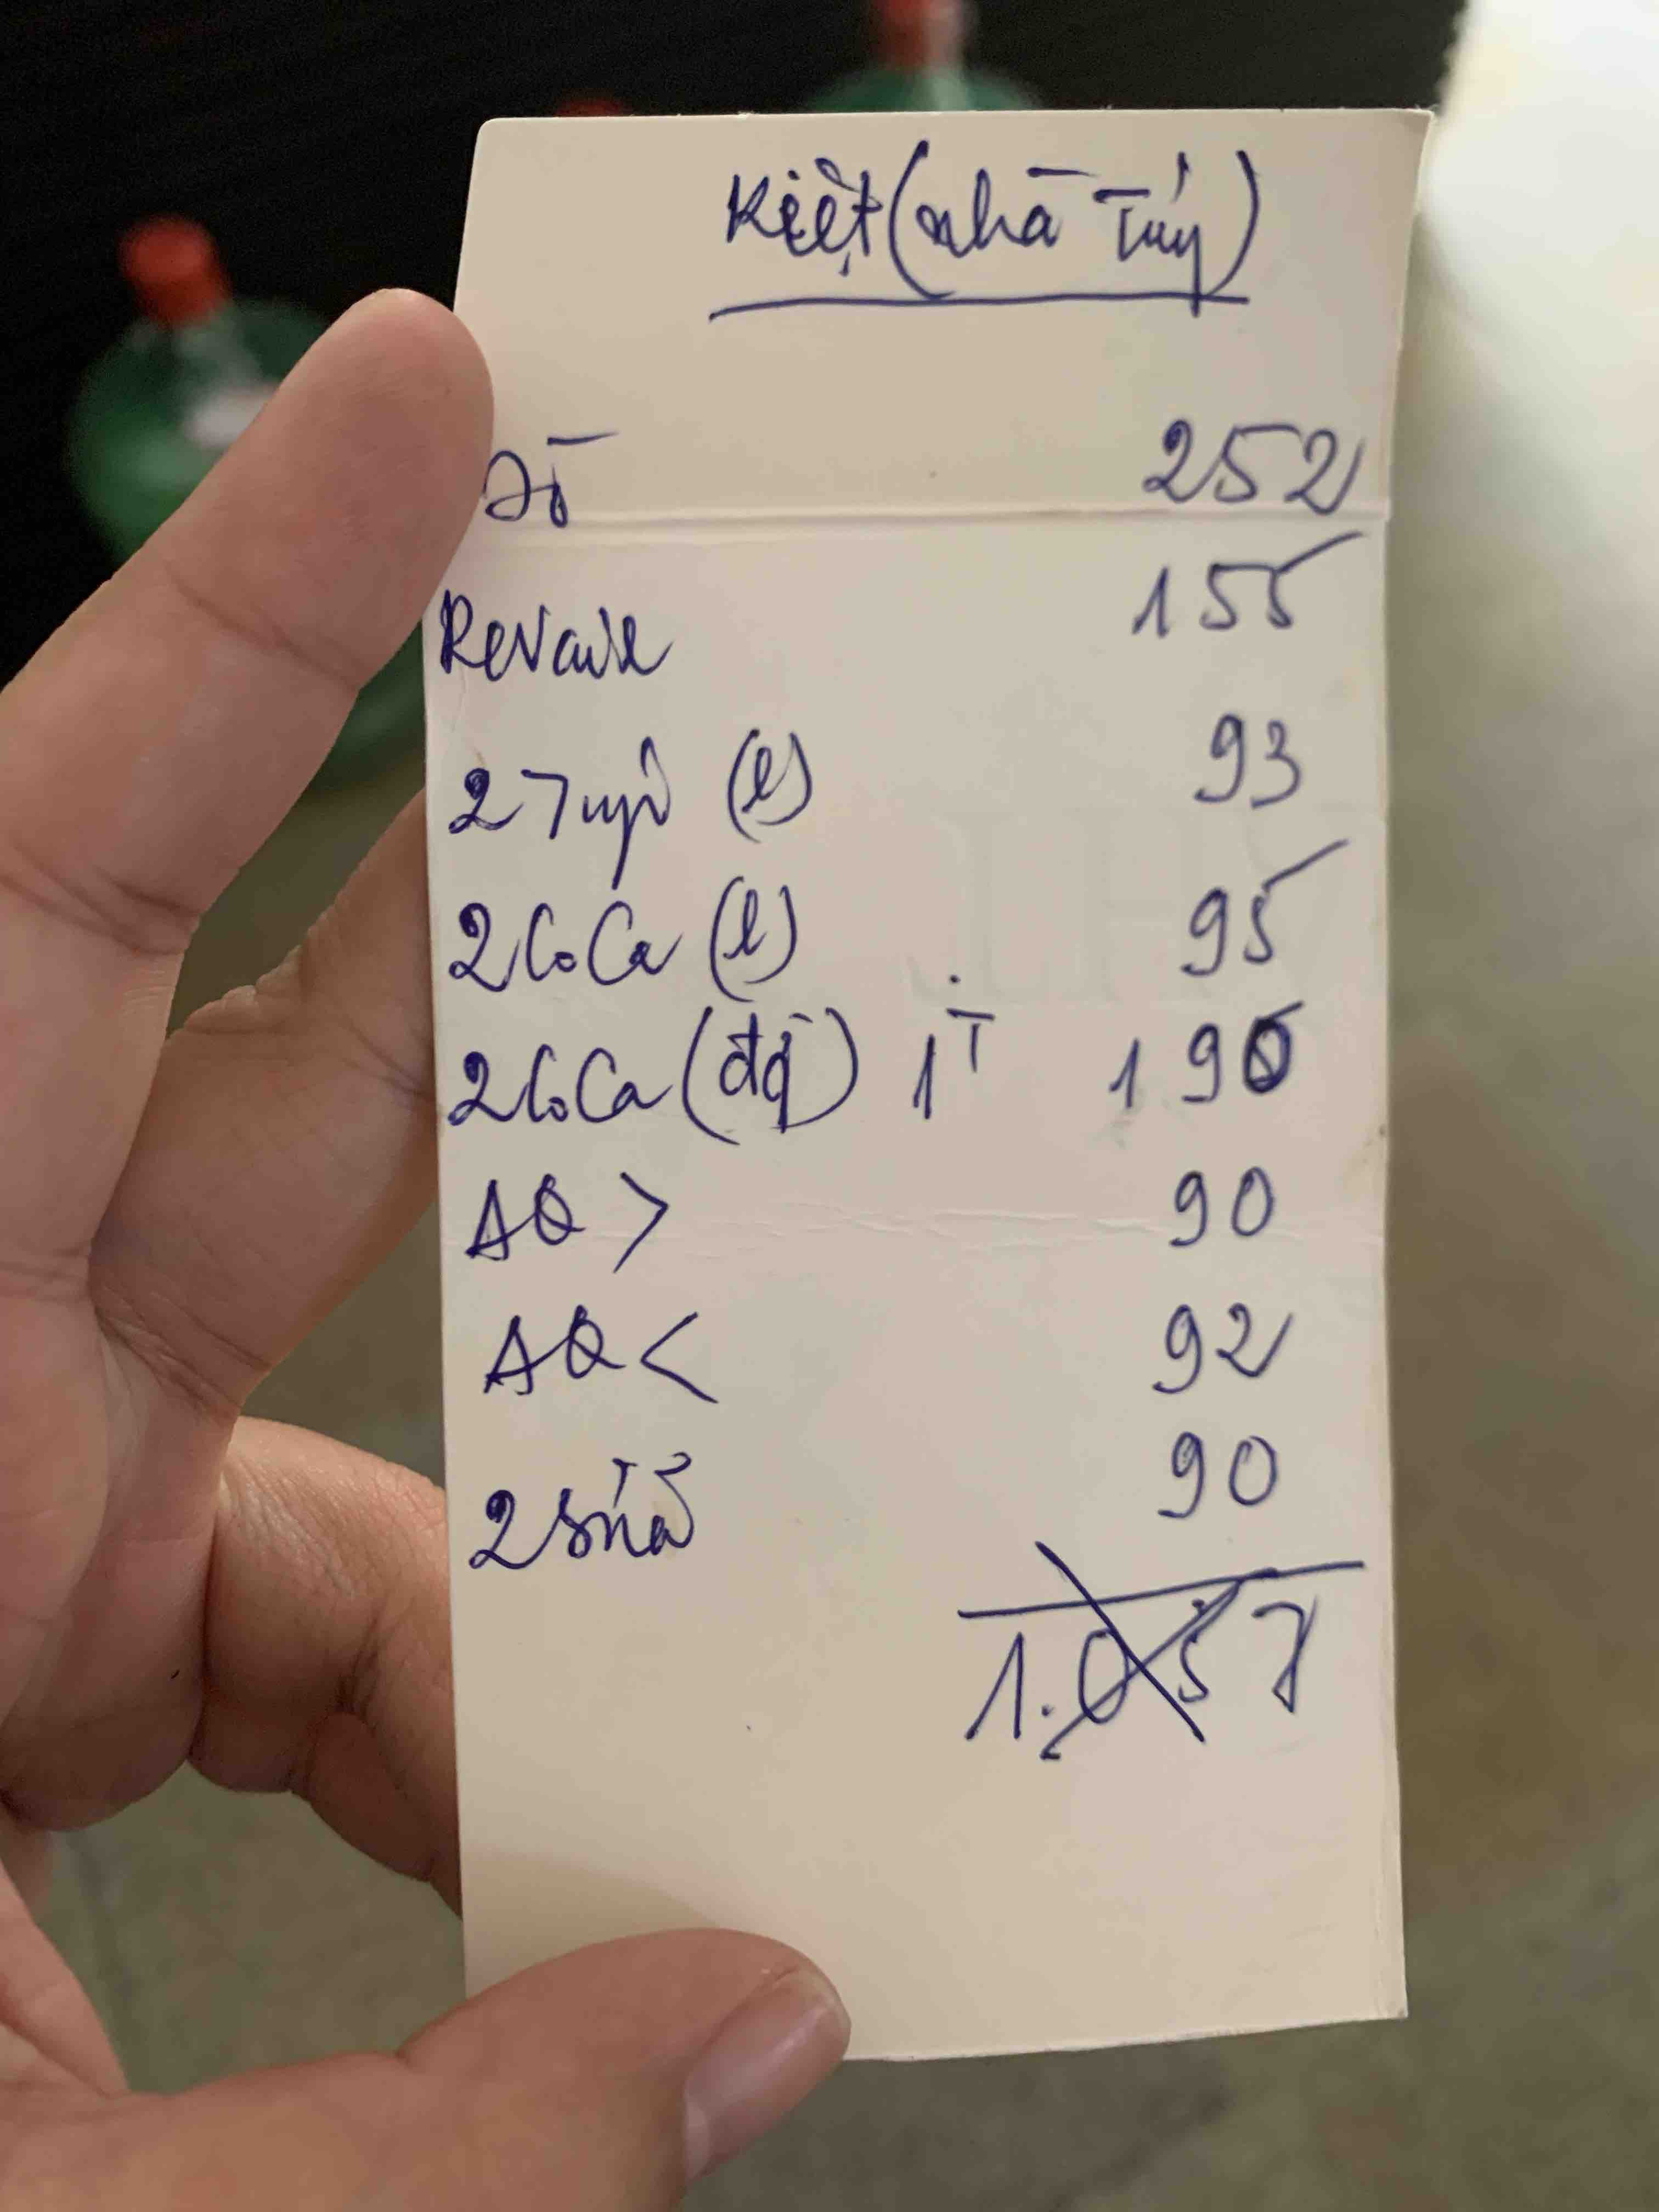 Kiệt (nhà Túy)
252
Revaive 155
2 7 up (l) 93
2 CoCa (l) 95
2 CoCa (đợi) 1T 190
AQ > 90
AQ < 92
2 sữa 90
1.057